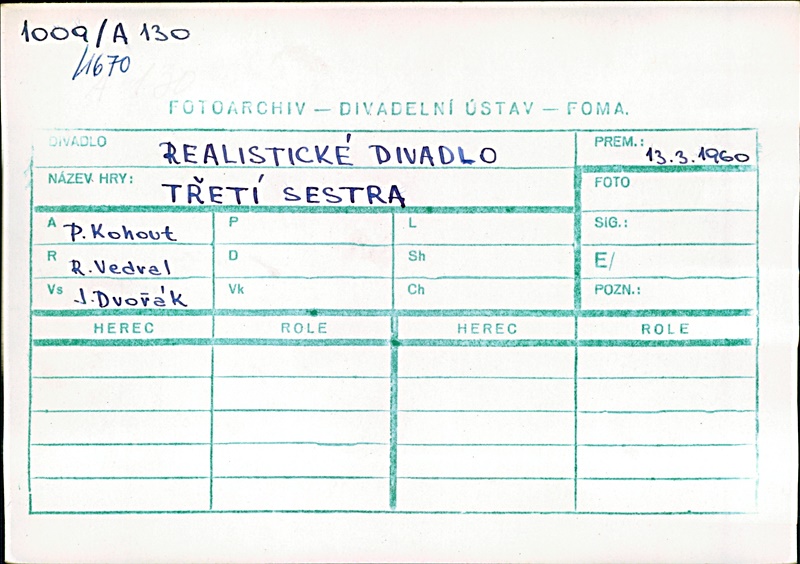 1009/A 130
11670
FOTOARCHIV — DIVADELNÍ ÚSTAV — FOMA.
DIVADLO REALISTICKÉ DIVADLO PREM.: 13.3.1960
NÁZEV HRY: TŘETÍ SESTRA FOTO
A P. Kohout P L SIG.:
R R. Vedral D Sh E/
Vs J. Dvořák Vk Ch POZN.:
HEREC ROLE HEREC ROLE